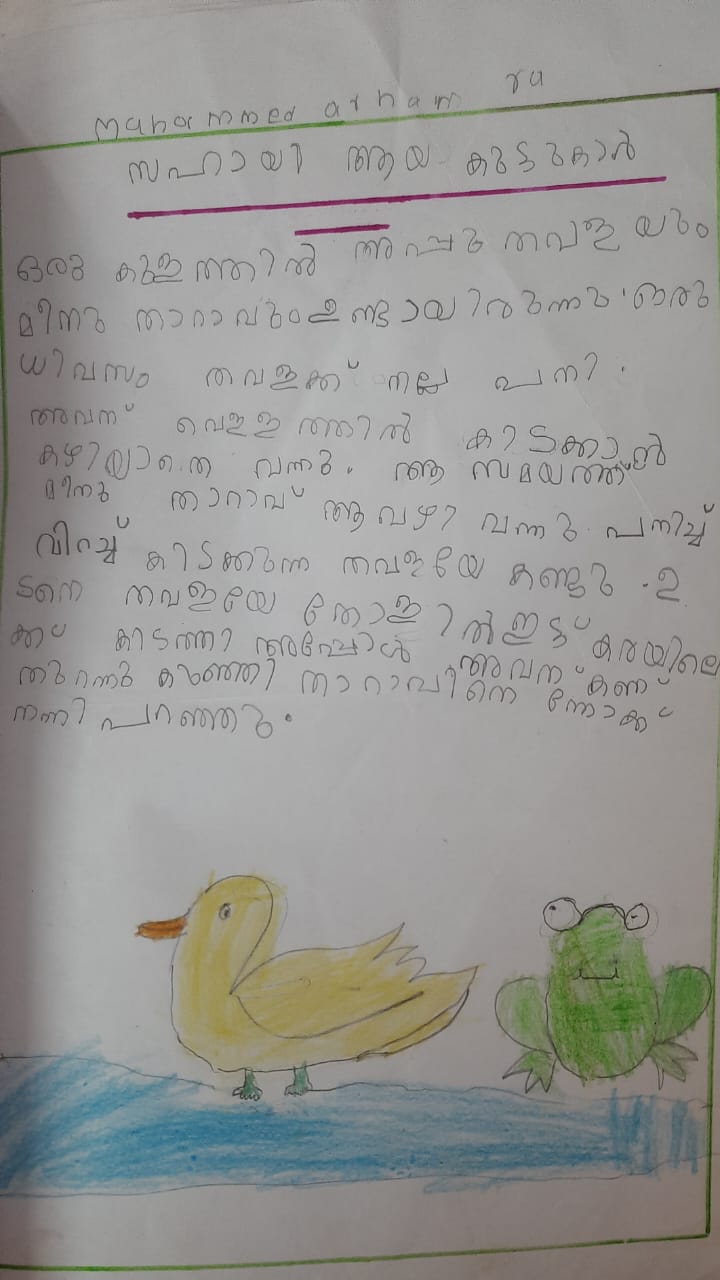 Muhammed arham ru
സഹായി ആയ കുട്ടുകാൻ
ഒരു കുളത്തിൽ അപ്പു തവളയും
മീനു താറാവും ഉണ്ടായിരുന്നു. ഒരു
ധിവസം തവളക്ക് നല്ല പനി.
അവന് വെള്ളത്തിൽ കിടക്കാൻ
കഴിയാതെ വന്നു. ആ സമയത്ത്
മീനു താറാവ് ആ വഴി വന്നു. പനിച്ച്
വിറച്ച് കിടക്കുന്ന തവളയേ കണ്ടു. ഉ
ടനെ തവളയേ തോളിൽ ഇട്ട് കരയിലെ
ക്ക് കിടത്തി അപ്പോൾ അവന് കണ്
തുറന്നു കുഞ്ഞി താറാവിനെ നോക്ക്
നന്നി പറഞ്ഞു.